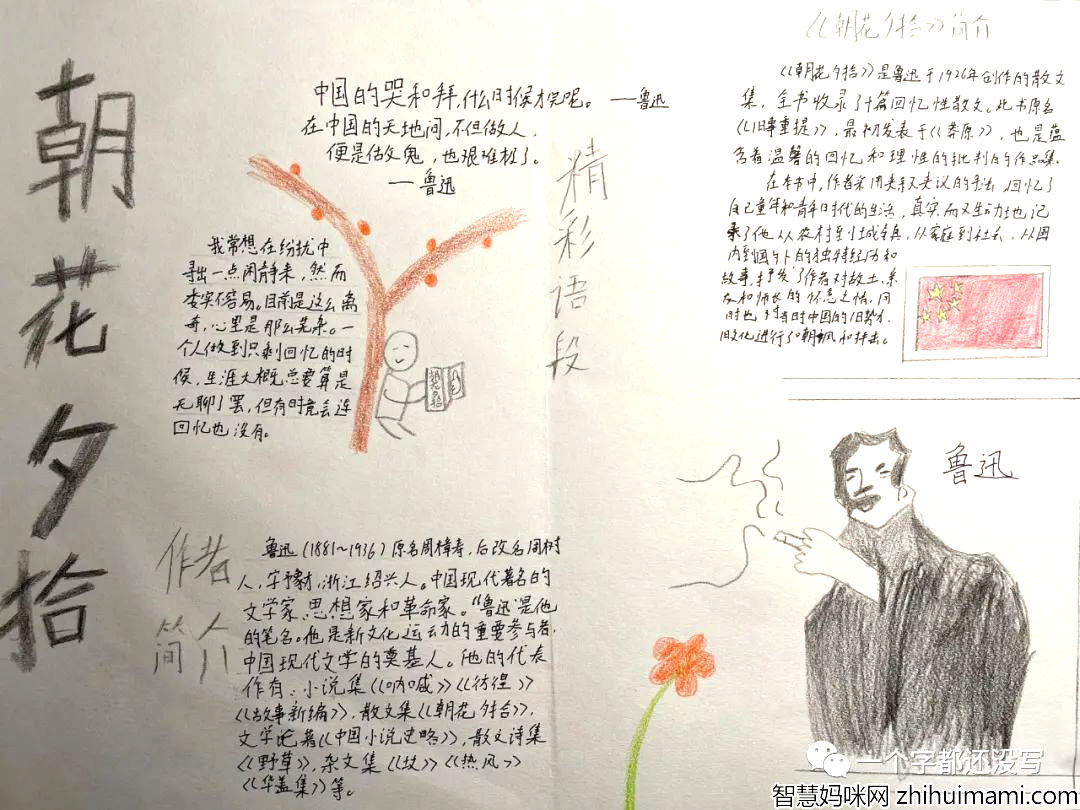 朝花夕拾
中国的哭和拜,什么时候才完呢。——鲁迅
在中国的天地间,不但做人,
便是做鬼,也艰难极了。
——鲁迅
精彩语段
我常想在纷扰中
寻出一点闲静来,然而
委实不容易。目前是这么离
奇,心里是那么芜杂。一
个人做到只剩回忆的时
候,生涯大概总要算是
无聊了罢,但有时竟会连
回忆也没有。
朝花夕拾
《朝花夕拾》简介
《朝花夕拾》是鲁迅于1926年创作的散文
集,全书收录了十篇回忆性散文。此书原名
《旧事重提》,最初发表于《莽原》,也是蕴
含着温馨的回忆和理性的批判的作品集。
在本书中,作者采用夹叙夹议的手法,回忆了
自己童年和青年时代的生活,真实而又生动地记
录了他从农村到城镇,从家庭到社会,从国
内到国外的独特经历和
故事,抒发了作者对故土、亲
友和师长的怀念之情,同
时也对当时中国的旧势力、
旧文化进行了嘲讽和抨击。
鲁迅
作者
简介
鲁迅(1881~1936)原名周樟寿,后改名周树
人,字豫才,浙江绍兴人。中国现代著名的
文学家、思想家和革命家。“鲁迅”是他
的笔名。他是新文化运动的重要参与者,
中国现代文学的奠基人。他的代表
作有:小说集《呐喊》《彷徨》
《故事新编》,散文集《朝花夕拾》,
文学论著《中国小说史略》,散文诗集
《野草》,杂文集《坟》《热风》
《华盖集》等。
一个字都还没写
智慧妈咪网 zhihuimami.com